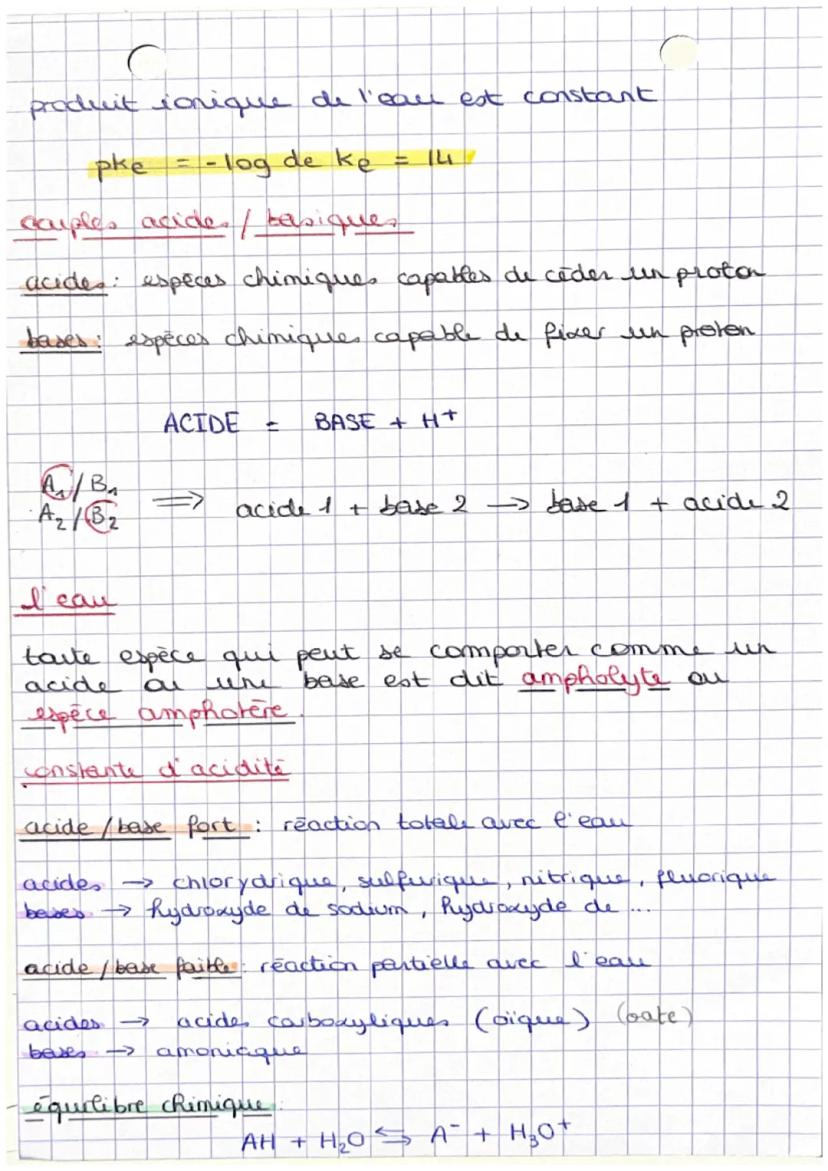 produit ionique de l'eau est constant
pke = -log de ke = 14
couples acides / basiques
acides : espèces chimiques capables de céder un proton
bases : espèces chimiques capable de fixer un proton
ACIDE = BASE + H⁺
A₁/B₁
A₂/B₂ ⟹ acide 1 + base 2 → base 1 + acide 2
l'eau
toute espèce qui peut se comporter comme un
acide ou une base est dit ampholyte ou
espèce amphotère.
constante d'acidité
acide / base fort : réaction totale avec l'eau
acides → chlorydrique, sulfurique, nitrique, fluorique
bases → hydroxyde de sodium, hydroxyde de ...
acide / base faible : réaction partielle avec l'eau
acides → acides carboxyliques (oïque) (oate)
bases → amoniaque
équilibre chimique :
AH + H₂O ⇆ A⁻ + H₃O⁺